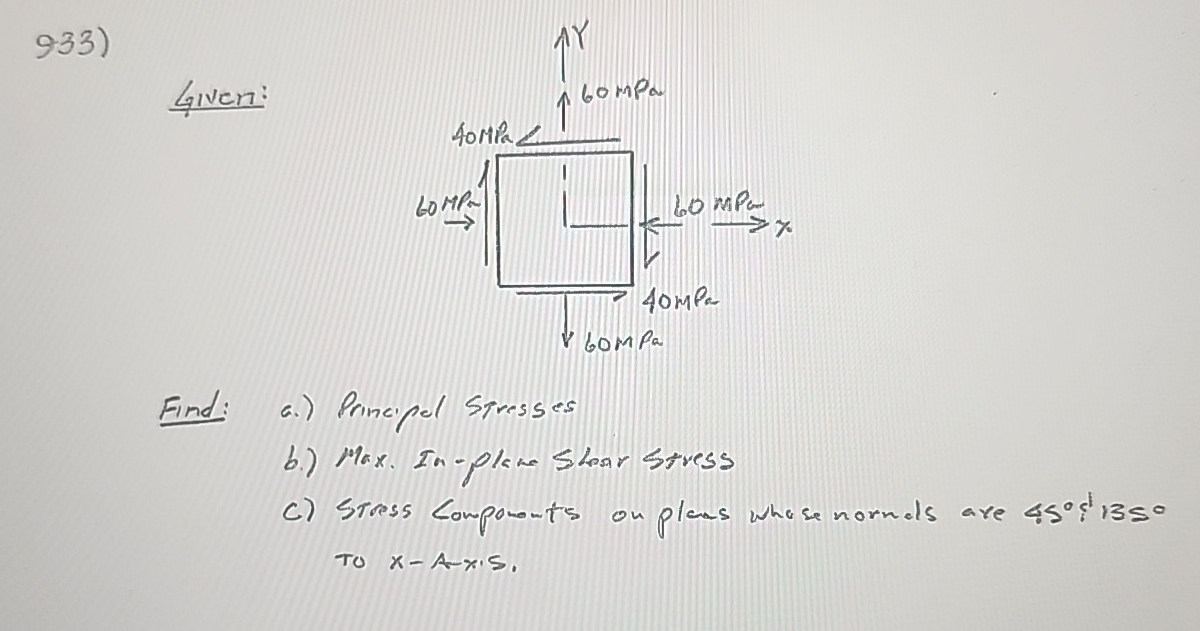 933)
Given:
Y
60 MPa
40 MPa
60 MPa
60 MPa
x
40 MPa
60 MPa
Find: a.) Principal Stresses
b.) Max. In-plane Shear Stress
c) Stress Components on planes whose normals are 45° & 135°
To x-Axis.